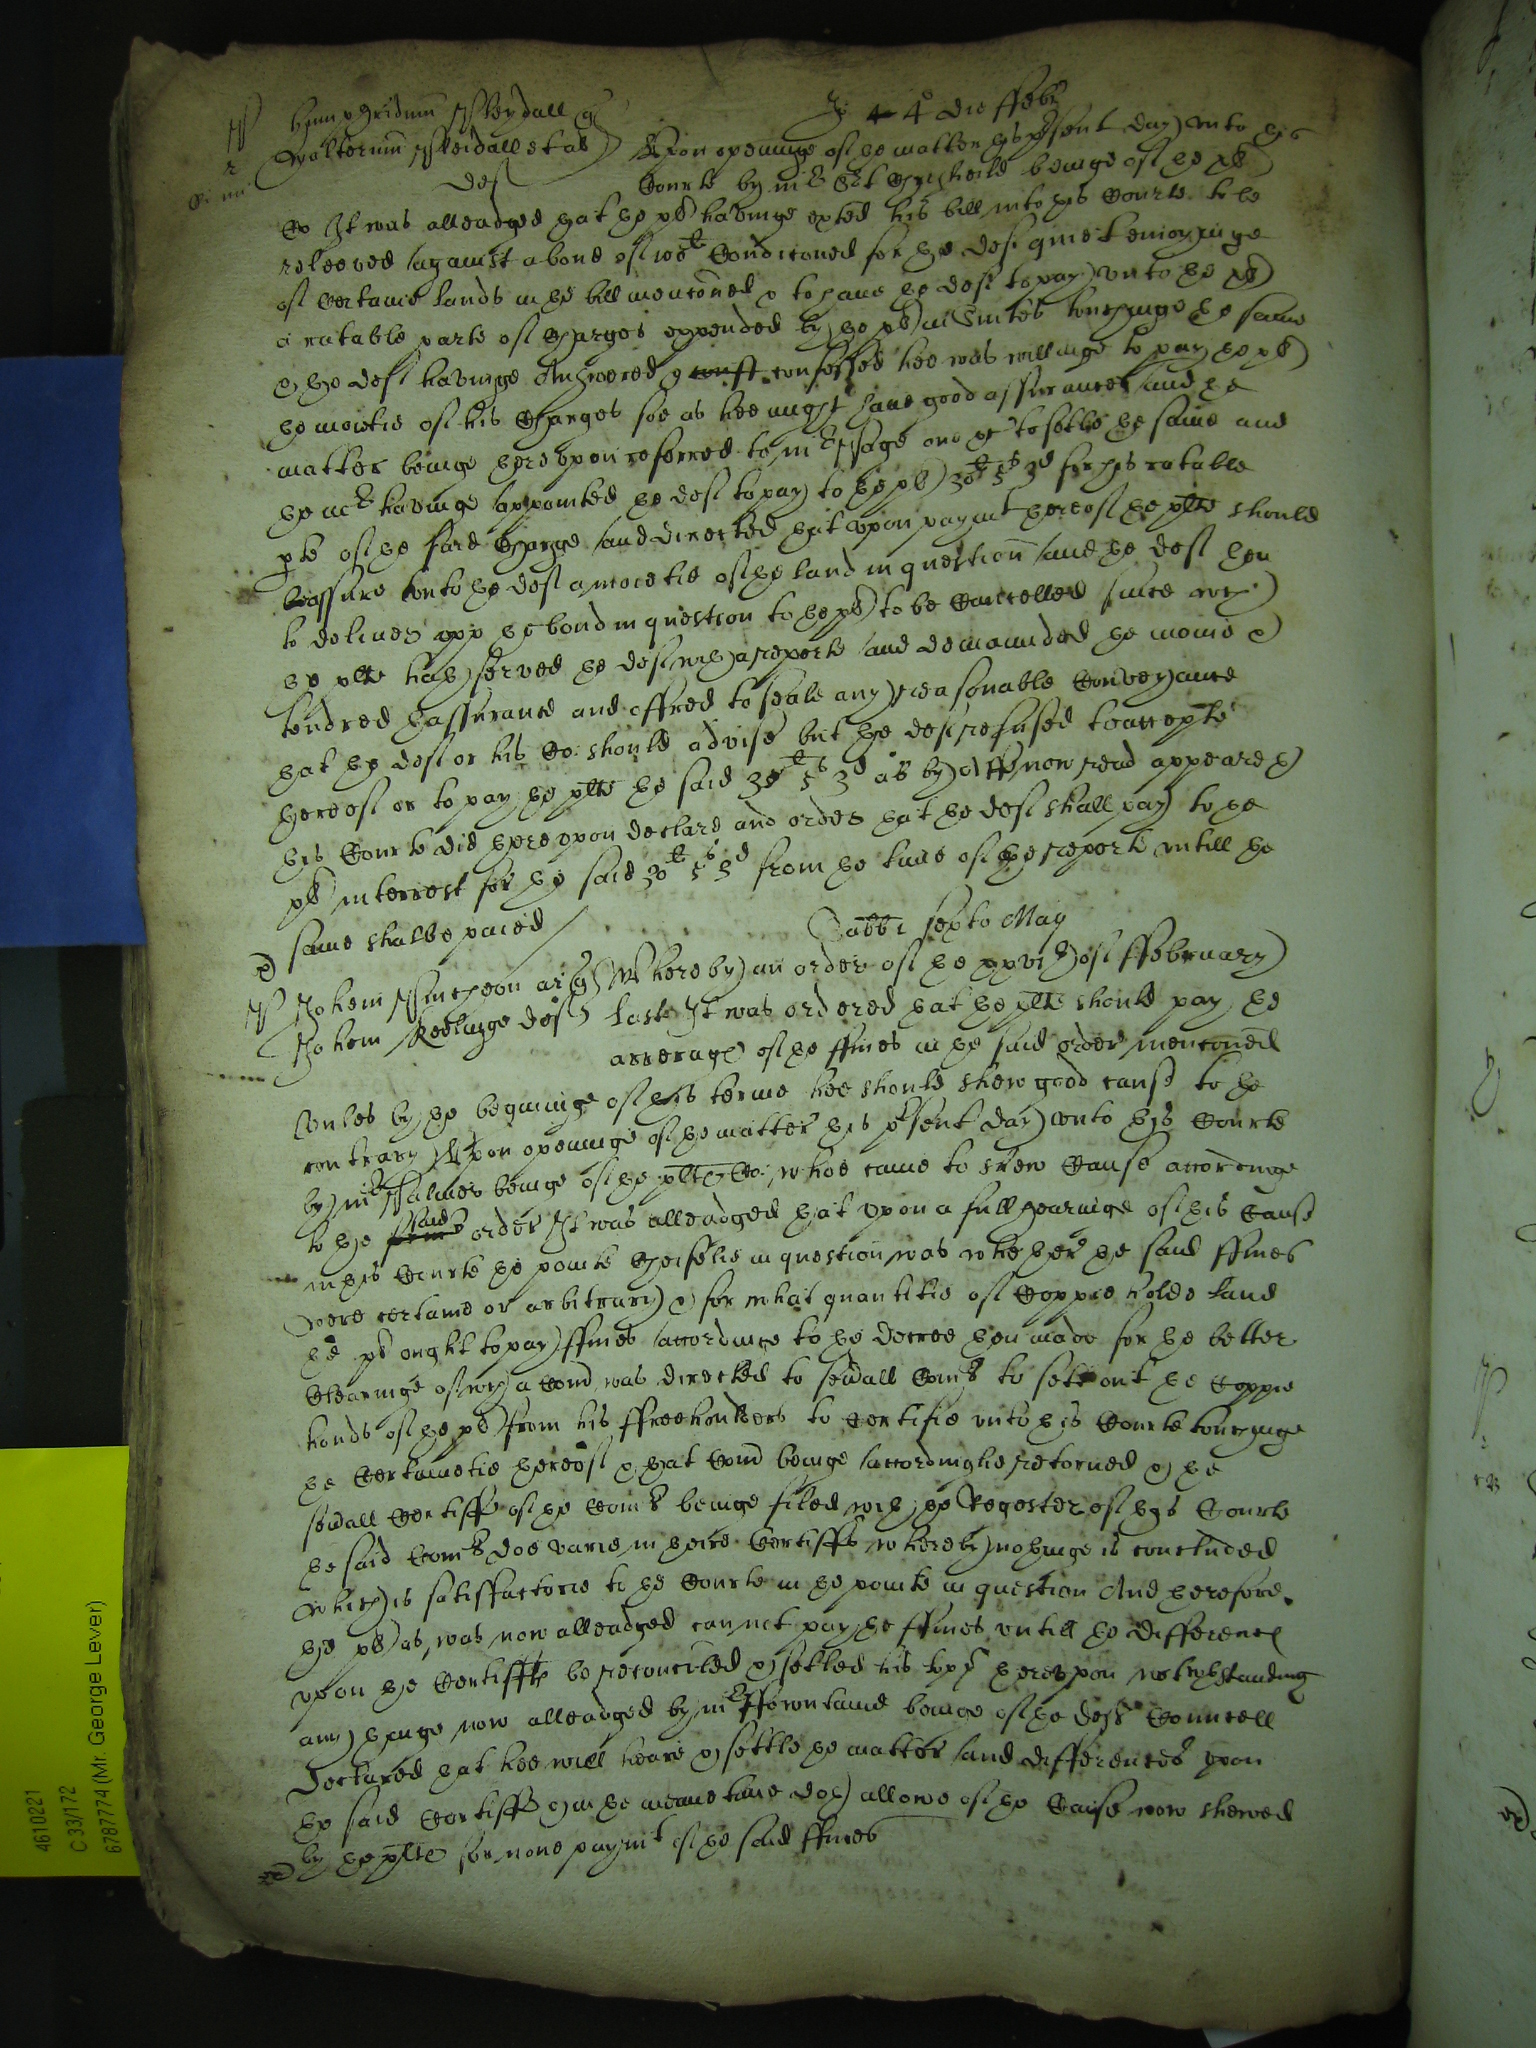 Jo 4° die ffebr
humphridum Steydall q
Walterum Steidall et al Upon openinge of the matter this p'sent day unto this
def Courte by mr beinge of the pl
Co It was alleadged that the pl havinge exted his bill into this Courte to be
releeved against a bond of 100l Conditioned for the def quiet enioyinge
of Certaine lands in the bill menconed & to have the def to pay unto the pl
a ratable parte of Charges expended by the pl in Suites touchinge the same
& the def havinge Answered & conf confessed hee was willinge to pay the pl
the moietie of his Charges soe as hee might have good assurances and the
matter beinge thereupon referred to mr Page one &c to settle the same and
the mr havinge appointed the def to pay to the pl 30l 5s 3d for his ratable
pte of the said Charge and directed that upon paymt thereof the plte should
assure unto the def a moietie of the land in question and the def then
to deliver upp the bond in question to the pl to be Cancelled since wch
the plte hath served the def wth a reporte and demaunded the monie &
tendred thassurance and offred to seale any reasonable Conveyance
that the def or his Co: should advise but the def refused to accepte
thereof or to pay the plte the said 30l 5s 3d as by aff now read appeareth
this Courte did thereupon declare and order that the def shall pay to the
pl interrest for the said 30l 5s 3d from the time of the reporte untill the
same shalbe paied
Sabbi sexto May
Johem Simcheon ar q Whereby an order of the xxvith of ffebruary
Johem Keelinge def last It was ordered that the plte should pay the
arrerage of the ffines in the said order menconed
Unles by the begininge of this terme hee should shew good cause to the
contrary Upon openinge of the matter this p'sent day unto this Courte
by mr Palmer beinge of the pltes Co: whoe came to shew Cause accordinge
to the said order It was alleadged that upon a full hearinge of this Cause
in this Courte the pointe Cheifelie in question was whether the said ffines
were certaine or arbitrary & for what quantitie of Coppie holde land
the pl ought to pay ffines accordinge to the decree then made for the better
Clearinge of wch a Comd was directed to sevall Comrs to sett out the Coppie
honds of the pl from his ffreehoulders to Certifie unto this Courte touchinge
the Certaintie thereof & that Comd beinge accordinglie retorned & the
sevall Certiffs of the Comrs beinge filed wth the Regester of this Courte
the said Comrs doe varie in theire Certiffs whereby nothinge is concluded
which is satisffactorie to the Courte in the pointe in question And therefore
the pl as was now alleadged cannot pay the ffines untill the differences
upon the Certiffts be reconciled & setled his lopp thereupon notwthstanding
any thinge now alleadged by mr ffowntaine beinge of the defts Councell
Declared that hee will heare & settle the matter and differences upon
the said Certiffs & in the meane time doth allowe of the Cause now shewed
by the plte for none paymt of the said ffines
4610221
C 33/172
6787774 (Mr. George Lever)